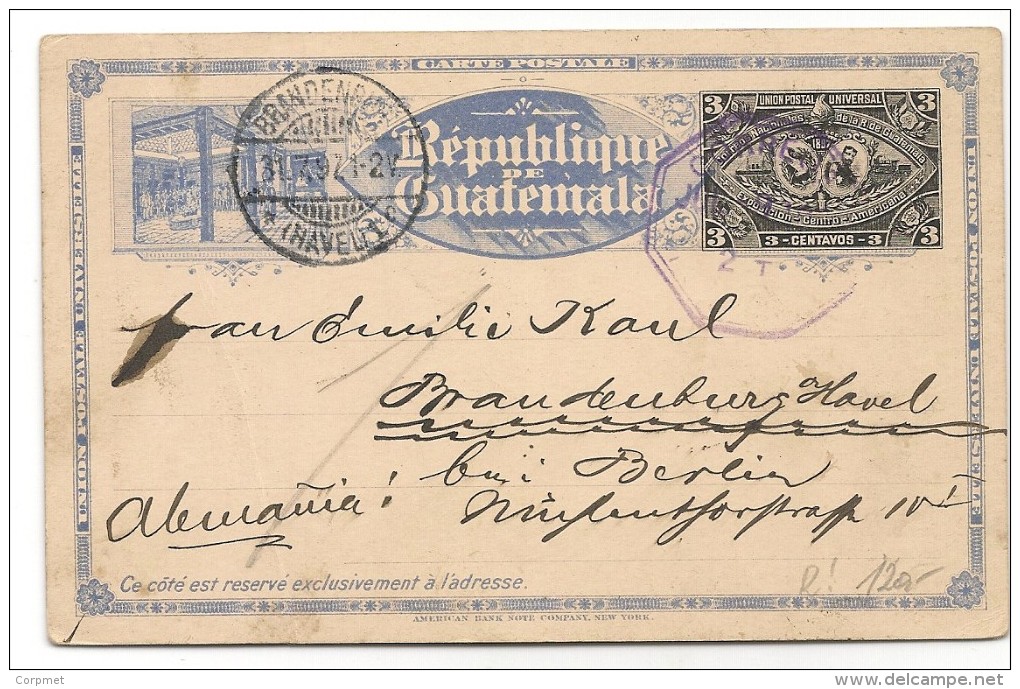 CARTE POSTALE
République
DE
Guatemala
3 UNION POSTAL UNIVERSAL 3
1897
Exposicion Centro-Americana
3 3-CENTAVOS-3 3
BRANDENBURG
31.7.97.1-2N.
(HAVEL)
2 T
UNION POSTALE UNIVERSELLE
UNION POSTALE UNIVERSELLE
Frau Émilie Kaul
Brandenburg a/Havel
bei Berlin
Alemania!
Ce côté est reservé exclusivement à l'adresse.
R! 120.-
AMERICAN BANK NOTE COMPANY, NEW YORK.
Corpmet
delcampe.net